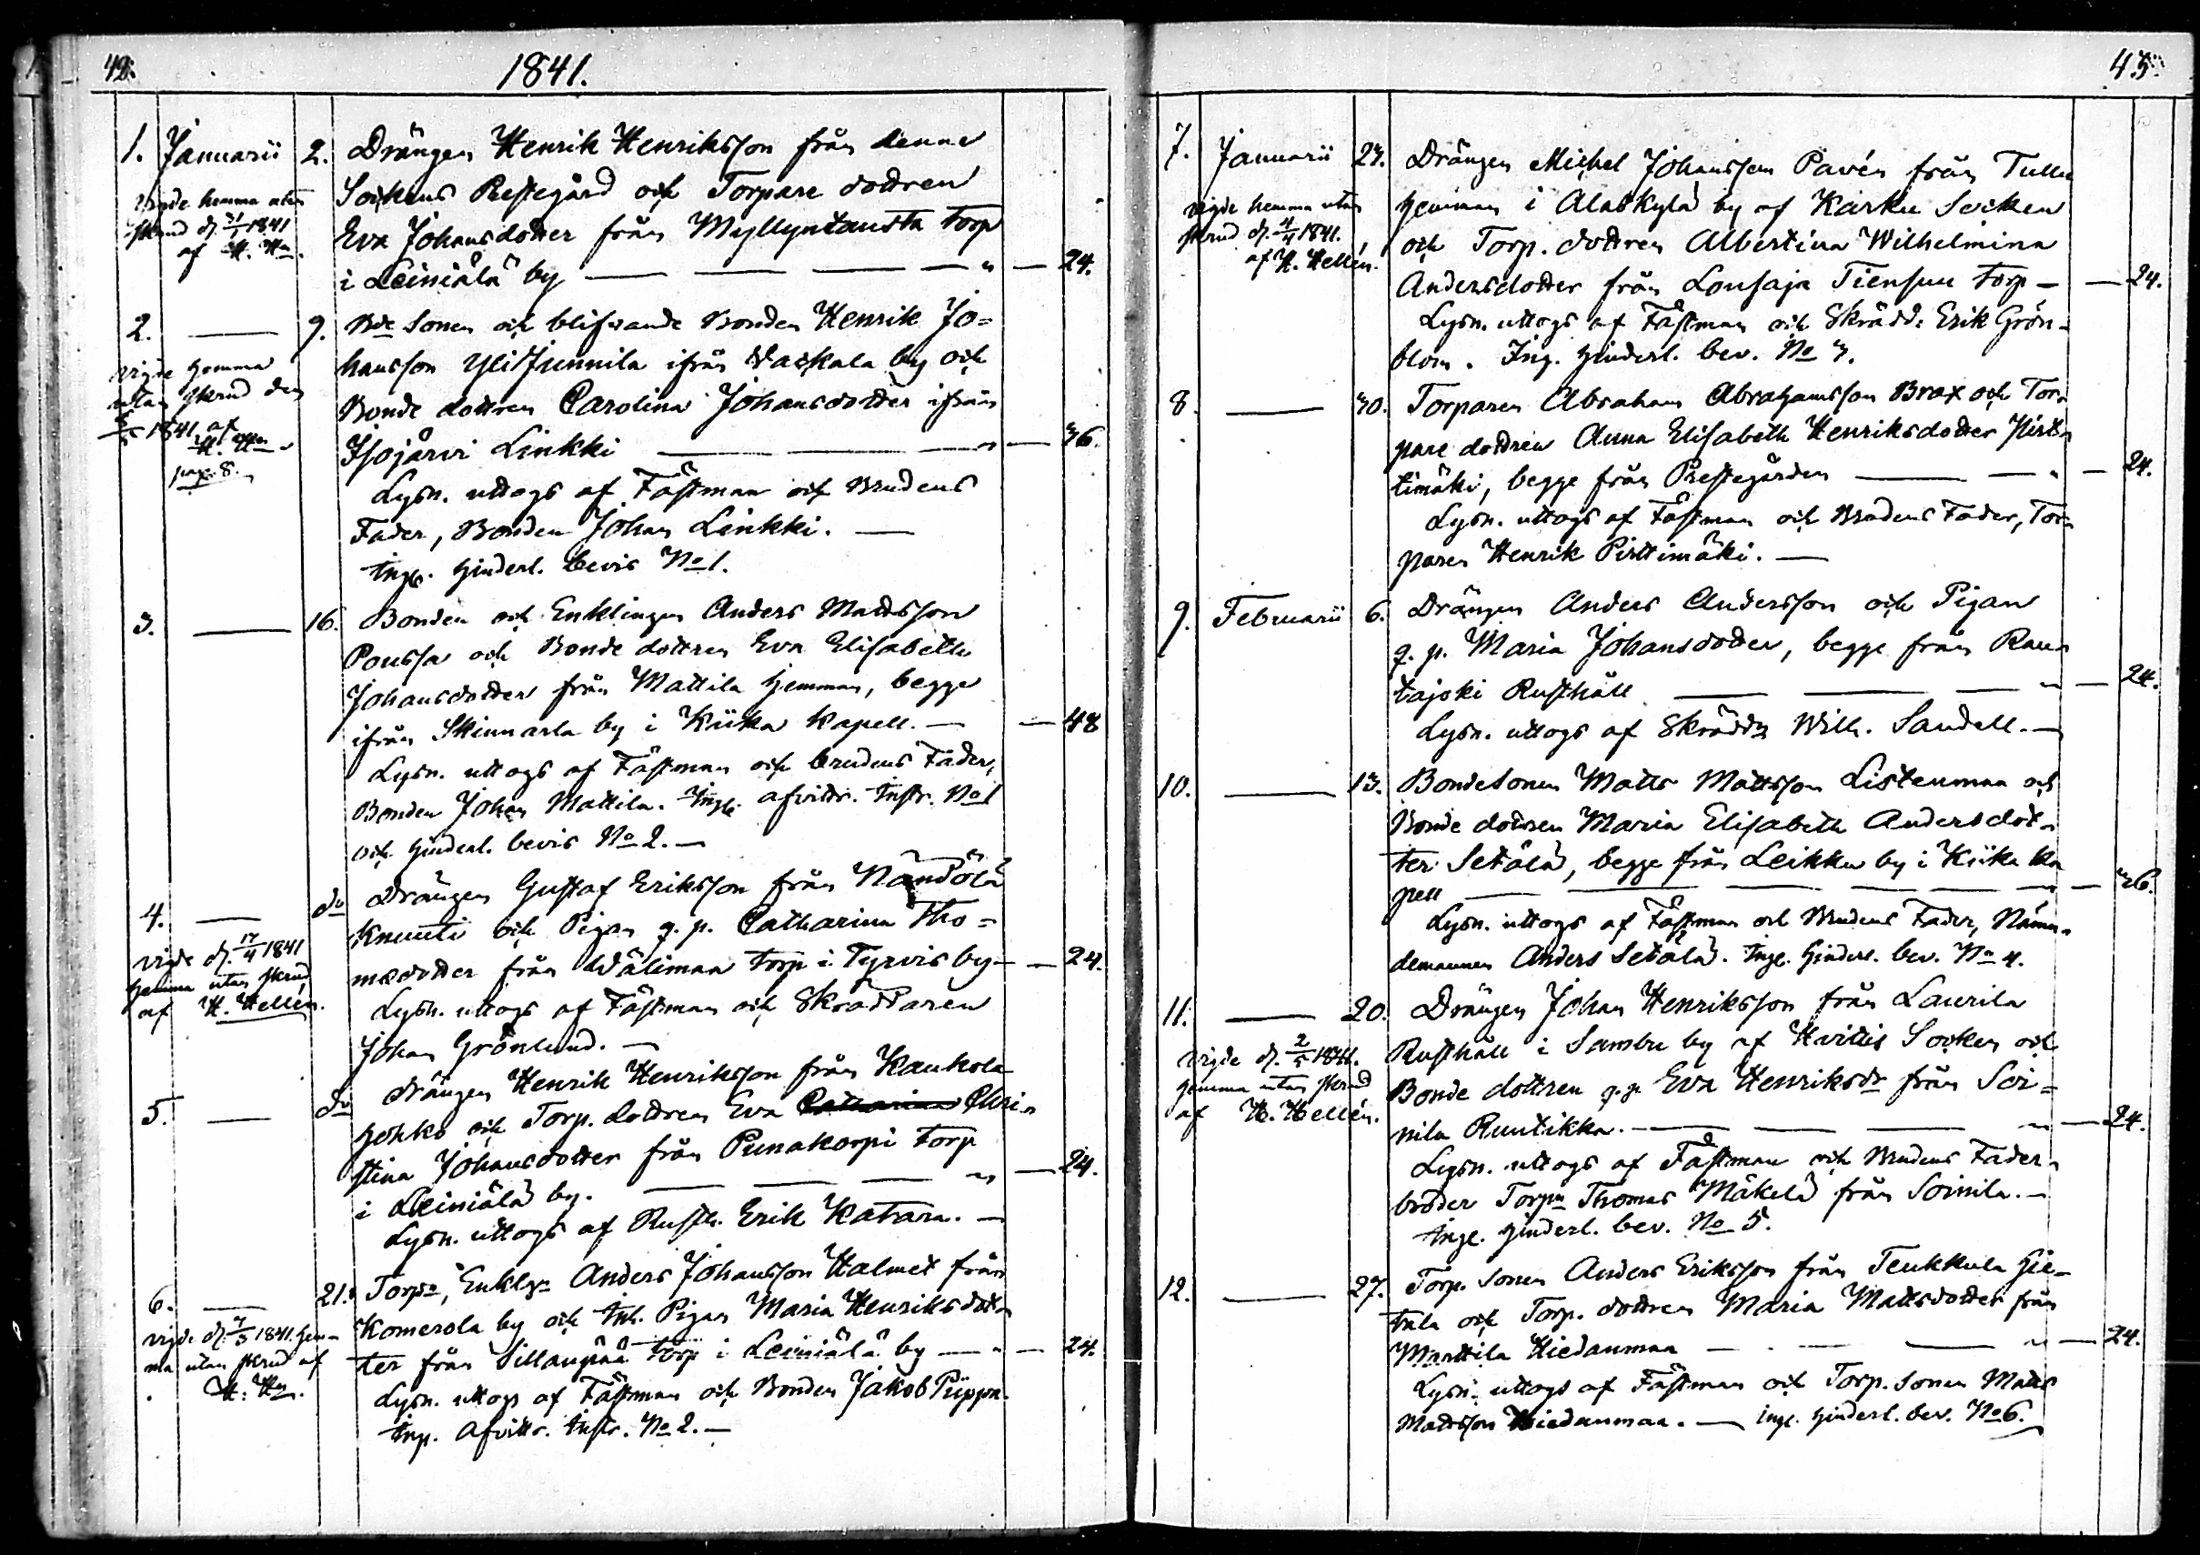 42.
1841.
1. Januarii 2. Drängen Henrik Henriksson från denne
Sockens Prestegård och Torpare dottren
Eva Johansdotter från Myllyntausta torp
i Leiniälä by — 24.
vigde hemma utan
skrud d. 31/1 1841
af H. Hn.
2. — 9. Bde Sonen och blifvande Bonden Henrik Jo=
hansson Ylistunnila ifrån Vaskala by och
Bonde dottren Carolina Johansdotter ifrån
Isojärvi Linkki — 36.
Lysn. uttogs af Fästman och Brudens
Fader, Bonden Johan Linkki. —
Ingb. Hinderl. bevis No 1.
vigde hemma
utan skrud den
1841 af
H. Hn
pag. 8.
3. — 16. Bonden och Enklingen Anders Mattsson
Poussa och Bonde dottren Eva Elisabeth
Johansdotter från Mattila Hemman, begge
ifrån Skinnarla by i Kiika Kapell. — 48
Lysn. uttogs af Fästman och brudens Fader,
Bonden Johan Mattila. Ingb. afvittr. Instr. No 1
och Hinderl. bevis No 2. —
4. — do Drängen Gustaf Eriksson från Nändölä
Knuuti och Pigan g. p. Catharina Tho=
masdotter från Wälimaa torp i Tyrvis by — 24.
Lysn. uttogs af Fästman och Skräddaren
Johan Grönlund. —
vigde d. 17/4 1841
hemma utan skrud
af H. Hellén.
5. — do Drängen Henrik Henriksson från Kaukola
Hohko och Torp. dottren Eva Catharina Chri=
stina Johansdotter från Punakorpi torp
i Leiniälä by. — 24.
Lysn. uttogs af Rusth. Erik Katara. —
6. — 21. Torpn, Enklgn Anders Johansson Halmet från
Komerola by och Inh. Pigan Maria Henriksdot=
ter från Sillanpää torp i Leiniälä by — 24.
Lysn. uttogs af Fästman och Bonden Jakob Piippo.
Ing. Afvittr. Instr. No 2. —
vigde d. 1841. hem=
ma utan skrud af
H. Hn.
43.
7. Januarii 23. Drängen Michel Johansson Pavén från Tulle
Hemman i Alaskylä by af Karku Socken
och Torp. dottren Albertina Wilhelmina
Andersdotter från Lousaja Tiensuu torp — 24.
Lysn. uttogs af Fästman och Skrädd. Erik Grön=
blom. Ing. Hinderl. bev. No 3.
vigde hemma utan
skrud d. 4/4 1841.
af H. Hellén.
8. — 30. Torparen Abraham Abrahamsson Brax och Tor=
pare dottren Anna Elisabeth Henriksdotter Pirt=
timäki, begge från Prestegården — 24.
Lysn. uttogs af Fästman och Brudens Fader, Tor=
paren Henrik Pirttimäki. —
9. Februarii 6. Drängen Anders Andersson och Pigan
g. p. Maria Johansdotter, begge från Rau=
tajoki Rusthåll — 24.
Lysn. uttogs af Skräddn Wilh. Sandell. —
10. — 13. Bondesonen Matts Mattsson Listenmaa och
Bonde dottren Maria Elisabeth Andersdot=
ter Setälä, begge från Leikku by i Kiika Ka
pell — 36.
Lysn. uttogs af Fästman och Brudens Fader, Nämn=
demannen Anders Setälä. Ingl. Hinderl. bev. No 4.
11. — 20. Drängen Johan Henriksson från Laurila
Rusthåll i Sambu by af Hvittis Socken och
Bonde dottren g. p. Eva Henriksdr från Soi=
nila Ruutikka. — 24.
Lysn. uttogs af Fästman och Brudens Fader=
broder Torpn Thomas Mäkelä från Soinila. —
Ingl. Hinderl. bev. No 5.
vigde d. 2/5 1841.
hemma utan skrud
af H. Hellén.
12. — 27. Torp. Sonen Anders Eriksson från Teukkula Hie=
tala och Torp. dottren Maria Mattsdotter från
Marttila Hiedanmaa — 24.
Lysn. uttogs af Fästman och Torp. Sonen Matts
Mattsson Hiedanmaa. — Ingl. Hinderl. bev. No 6.